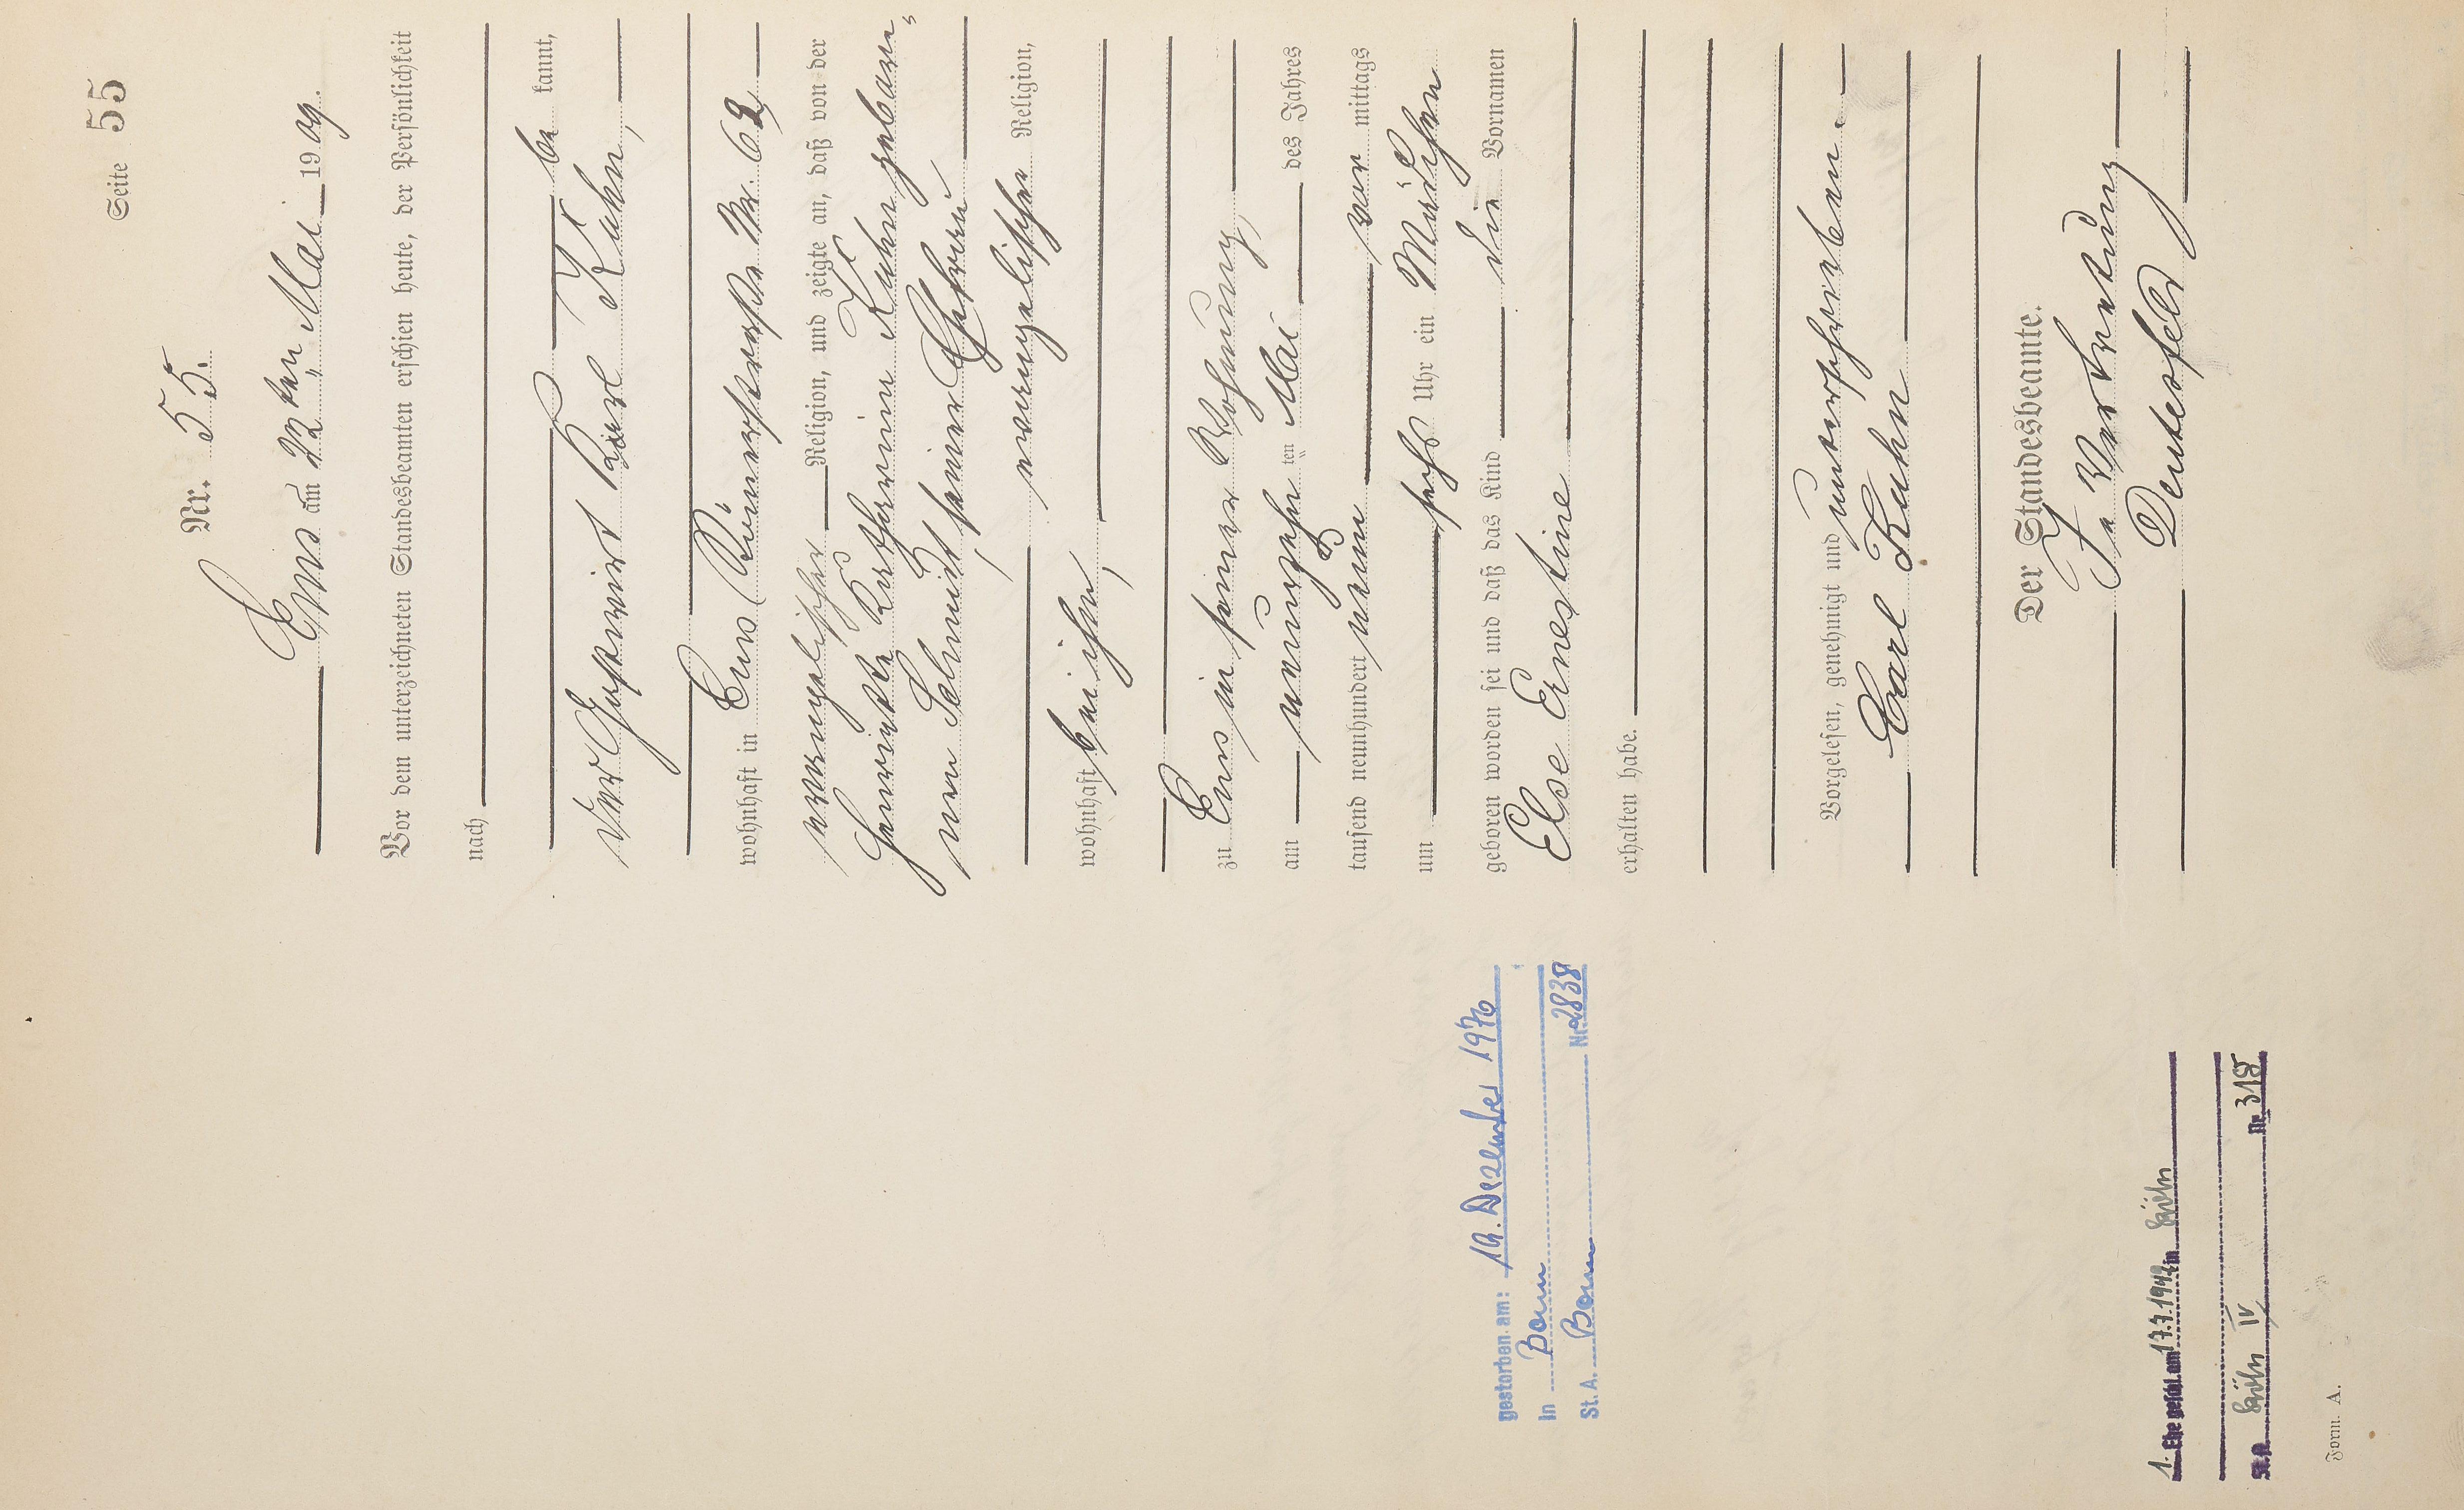 Seite 55
Nr. 55.
Ems am 22ten Mai 1909.
Vor dem unterzeichneten Standesbeamten erschien heute, der Persönlichkeit
nach
be kannt,
der Gastwirt Karl Kuhn,
wohnhaft in Ems Römerstraße Nr. 62,
evangelischer Religion, und zeigte an, daß von der
Henriette Katharina Kuhn gebore=
nen Schmidt, seiner Ehefrau
evangelischer Religion,
wohnhaft bei ihm,
zu Ems in seiner Wohnung,
am neunzehnten Mai des Jahres
tausend neunhundert neun vor mittags
um sechs Uhr ein Mädchen
geboren worden sei und daß das Kind die Vornamen
Else Ernestine
erhalten habe.
Vorgelesen, genehmigt und unterschrieben.
Carl Kuhn
Der Standesbeamte.
In Vertretung
Deutesfeld
gestorben am: 19. Dezember 1976
in Bonn
St. A. Bonn Nr. 2838
1. Ehe geschl. am 17.7.1942 in Köln
St.A. Köln IV Nr. 318
Form. A.